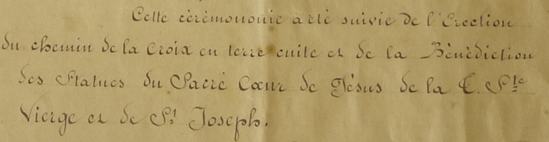 Cette cérémononie a été suivie de l'Erection
du chemin de la Croix en terre cuite et de la Bénédiction
des Statues du Sacré Cœur de Jésus de la T. Ste
Vierge et de St Joseph.